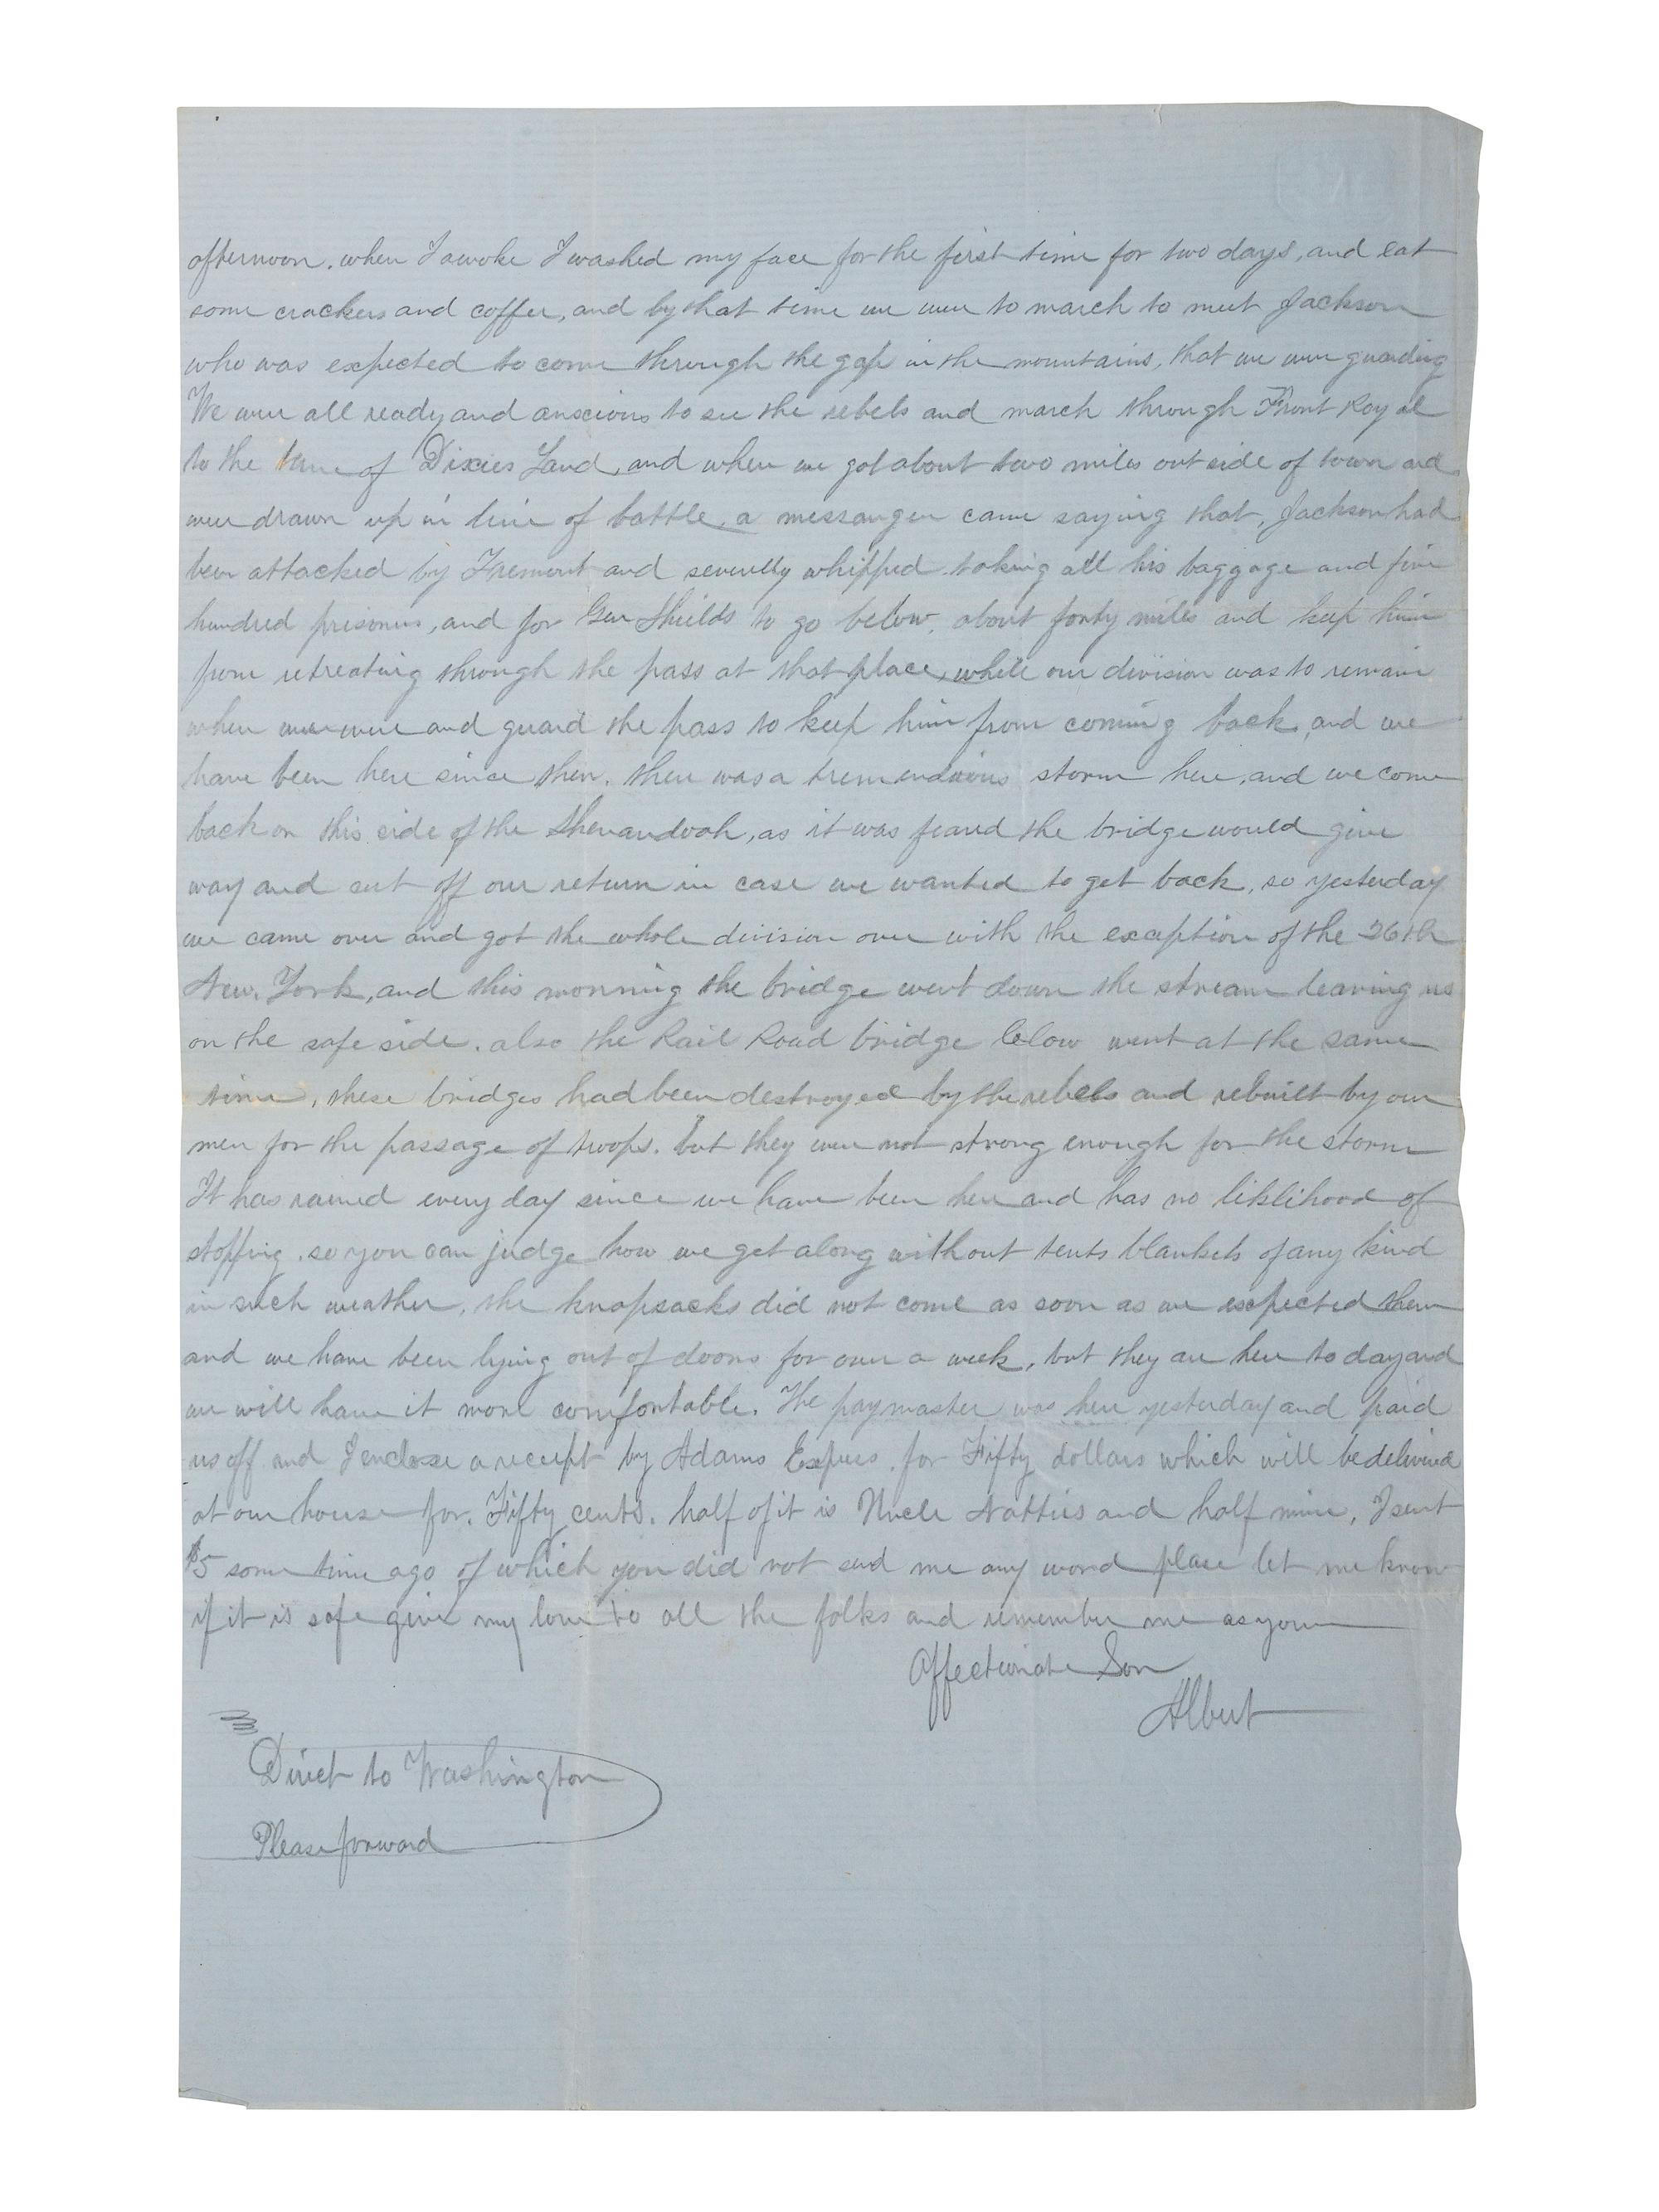 afternoon. when I awoke I washed my face for the first time for two days, and eat
some crackers and coffee, and by that time we were to march to meet Jackson
who was expected to come through the gap in the mountains, that we were guarding
We were all ready and anscious to see the rebels and march through Front Royal
to the tune of Dixies Land, and when we got about two miles out side of town and
were drawn up in line of battle, a messanger came saying that, Jackson had
been attacked by Fremont and severelly whipped taking all his baggage and five
hundred prisoners, and for Gen Shields to go below, about forty miles and keep him
from retreating through the pass at that place, while our division was to remain
when we were and guard the pass to keep him from coming back, and we
have been here since then. there was a storm here, and we come
back on this side of the Shenandoah, as it was feared the bridge would give
way and cut off our return in case we wanted to get back, so yesterday
we came over and got the whole division over with the exception of the 26th
New. York, and this morning the bridge went down the stream leaving us
on the safe side. also the Rail Road bridge below went at the same
time, these bridges had been destroyed by the rebels and rebuilt by our
men for the passage of troops. but they were not strong enough for the storm
It has rained every day since we have been here and has no liklihood of
stopping. so you can judge how we get along without tents blankets of any kind
in such weather, the knapsacks did not come as soon as we expected them
and we have been lying out of doors for over a week, but they are here to day and
we will have it more comfortable. The paymaster was here yesterday and paid
us off and I enclose a receipt by Adams Express for Fifty dollars which will be delivered
at our house for. Fifty cents. half of it is Uncle Natties and half mine, I sent
$5 some time ago of which you did not send me any word please let me know
if it is safe give my love to all the folks and remember me as your
Affectionate Son
Albert
Direct to Washington
Please forward